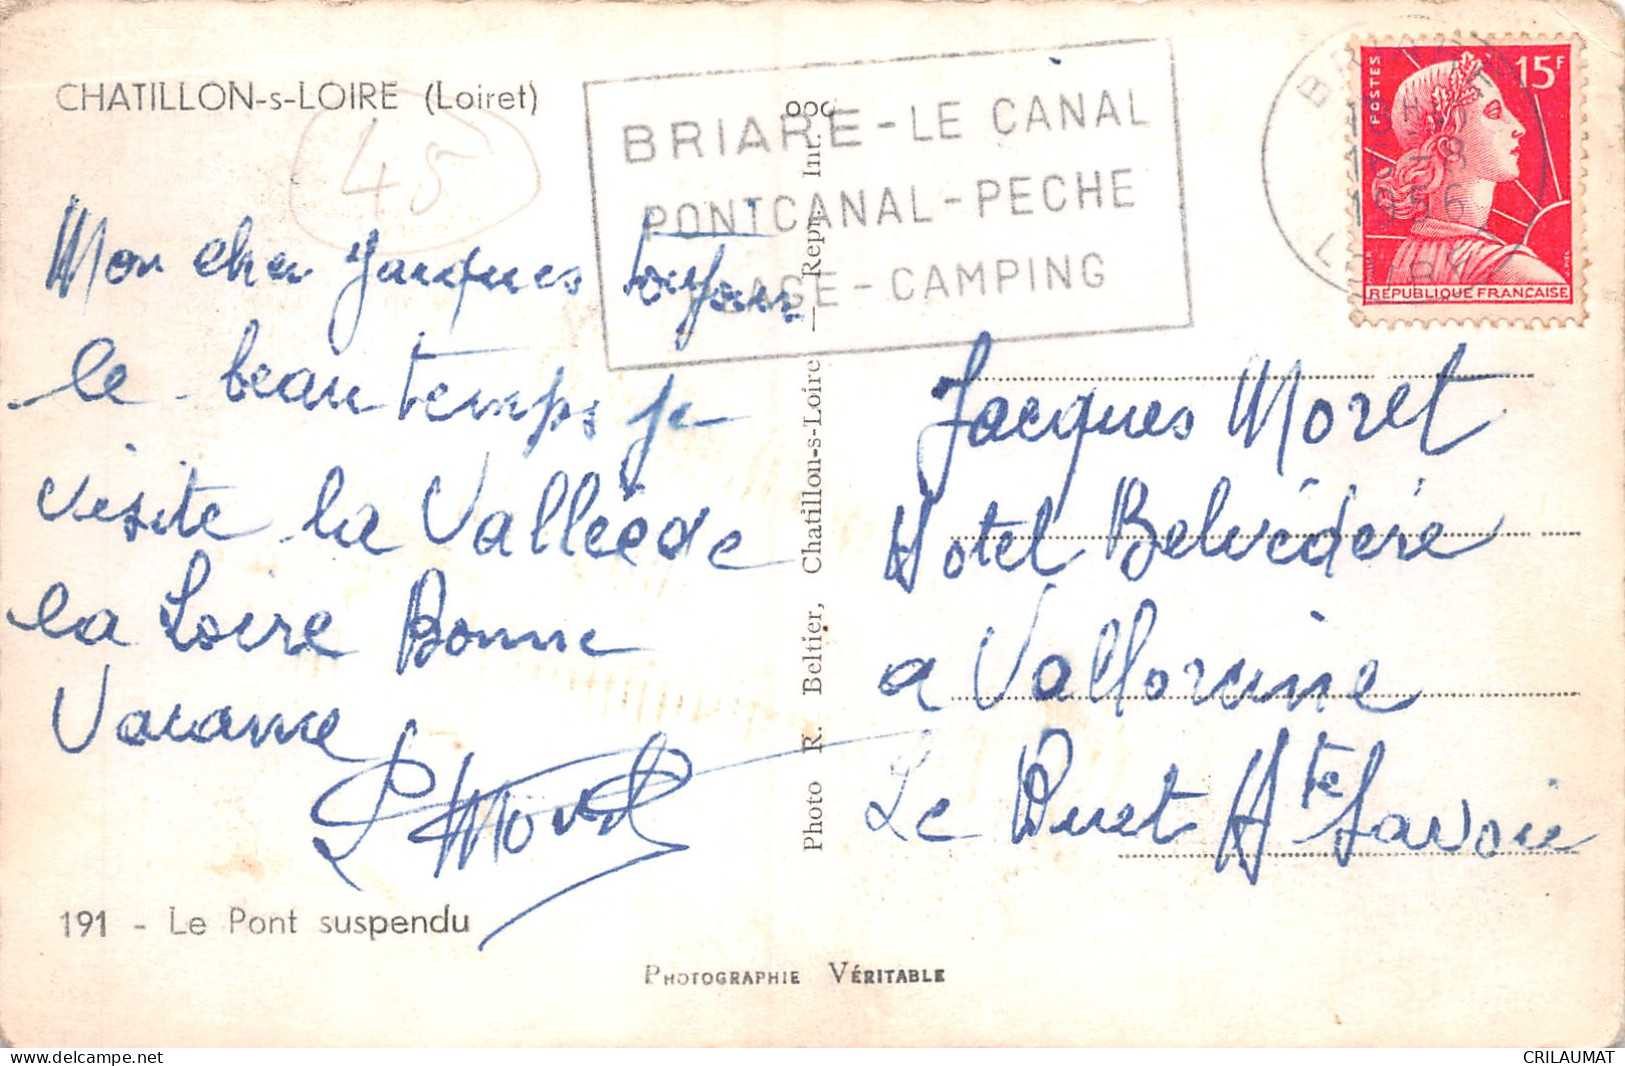 CHATILLON-s-LOIRE (Loiret)
45
Mon cher Jacques Toujours
le beau temps je
visite la Vallée de
la Loire Bonne
Vacance
191 - Le Pont suspendu
BRIARE - LE CANAL
PONT CANAL - PECHE
AGE - CAMPING
Photo R. Beltier, Chatillon-s-Loire — Repr. Int.
18H
-8
1956
LOIRET
POSTES
15F
REPUBLIQUE FRANCAISE
Jacques Moret
Hotel Belvédère
a Vallorcine
Le Buret Hte Savoie
PHOTOGRAPHIE VÉRITABLE
www.delcampe.net
CRILAUMAT